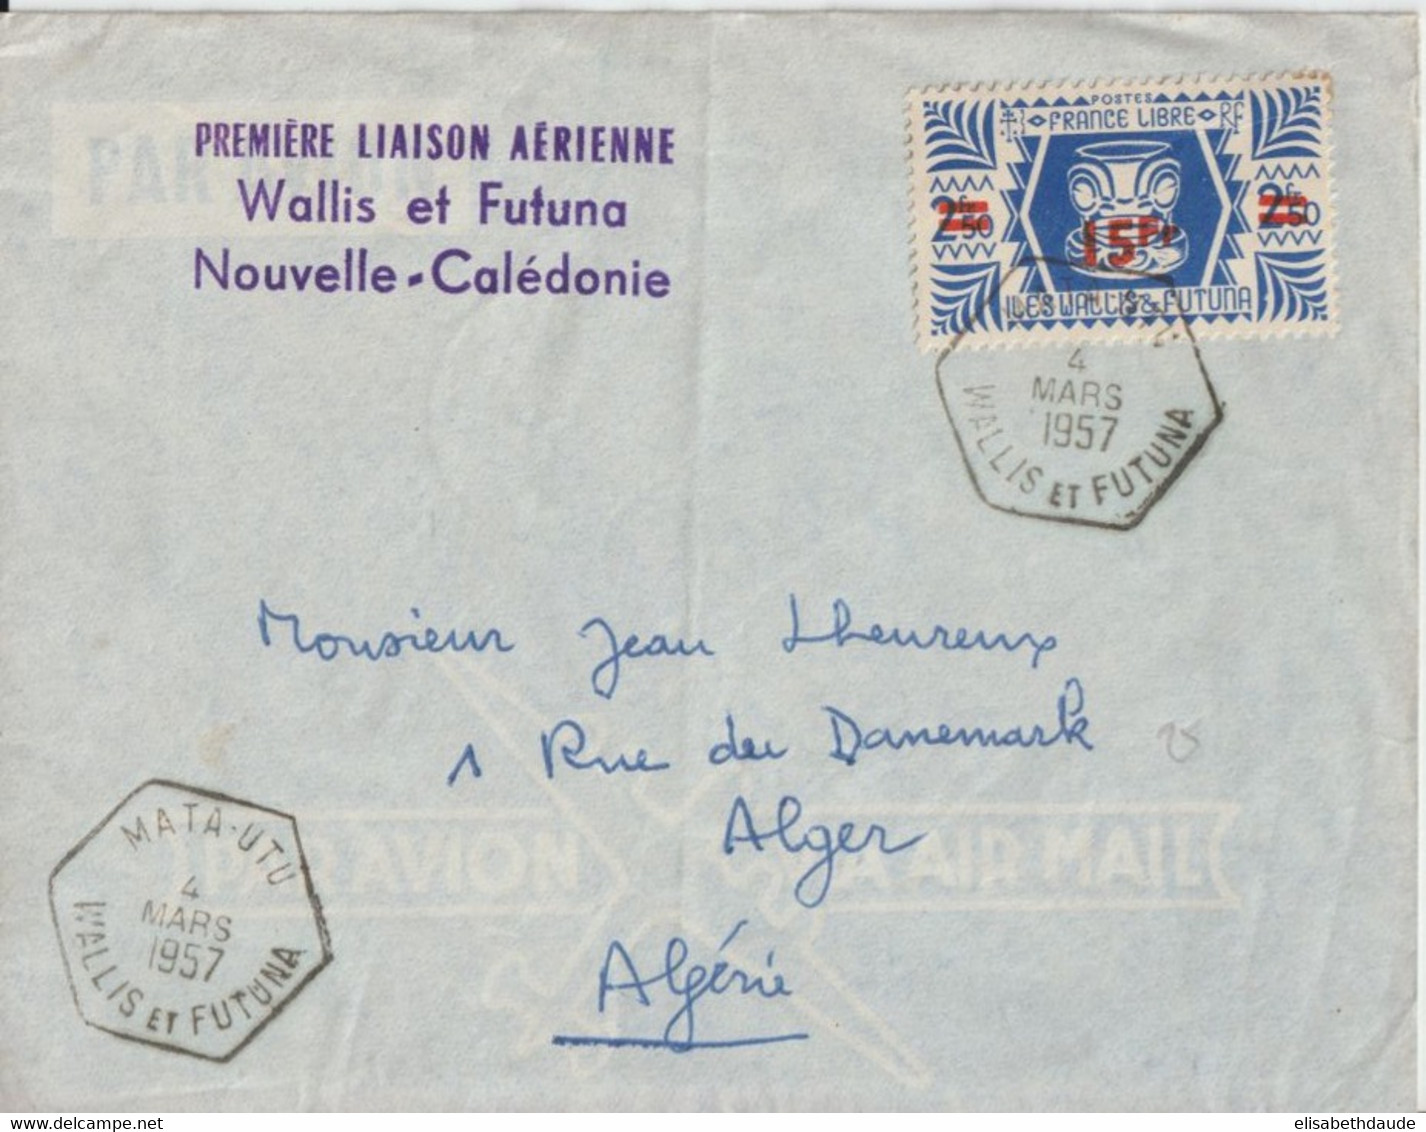 PREMIÈRE LIAISON AÉRIENNE
Wallis et Futuna
Nouvelle-Calédonie
PAR
POSTES
FRANCE LIBRE RF
2fr50 2fr50
15Fr
ILES WALLIS & FUTUNA
4
MARS
1957
WALLIS ET FUTUNA
Monsieur Jean Lheureux
1 Rue du Danemark
25
Alger
PAR AVION VIA AIR MAIL
Algérie
MATA-UTU
4
MARS
1957
WALLIS ET FUTUNA
elisabethdaude